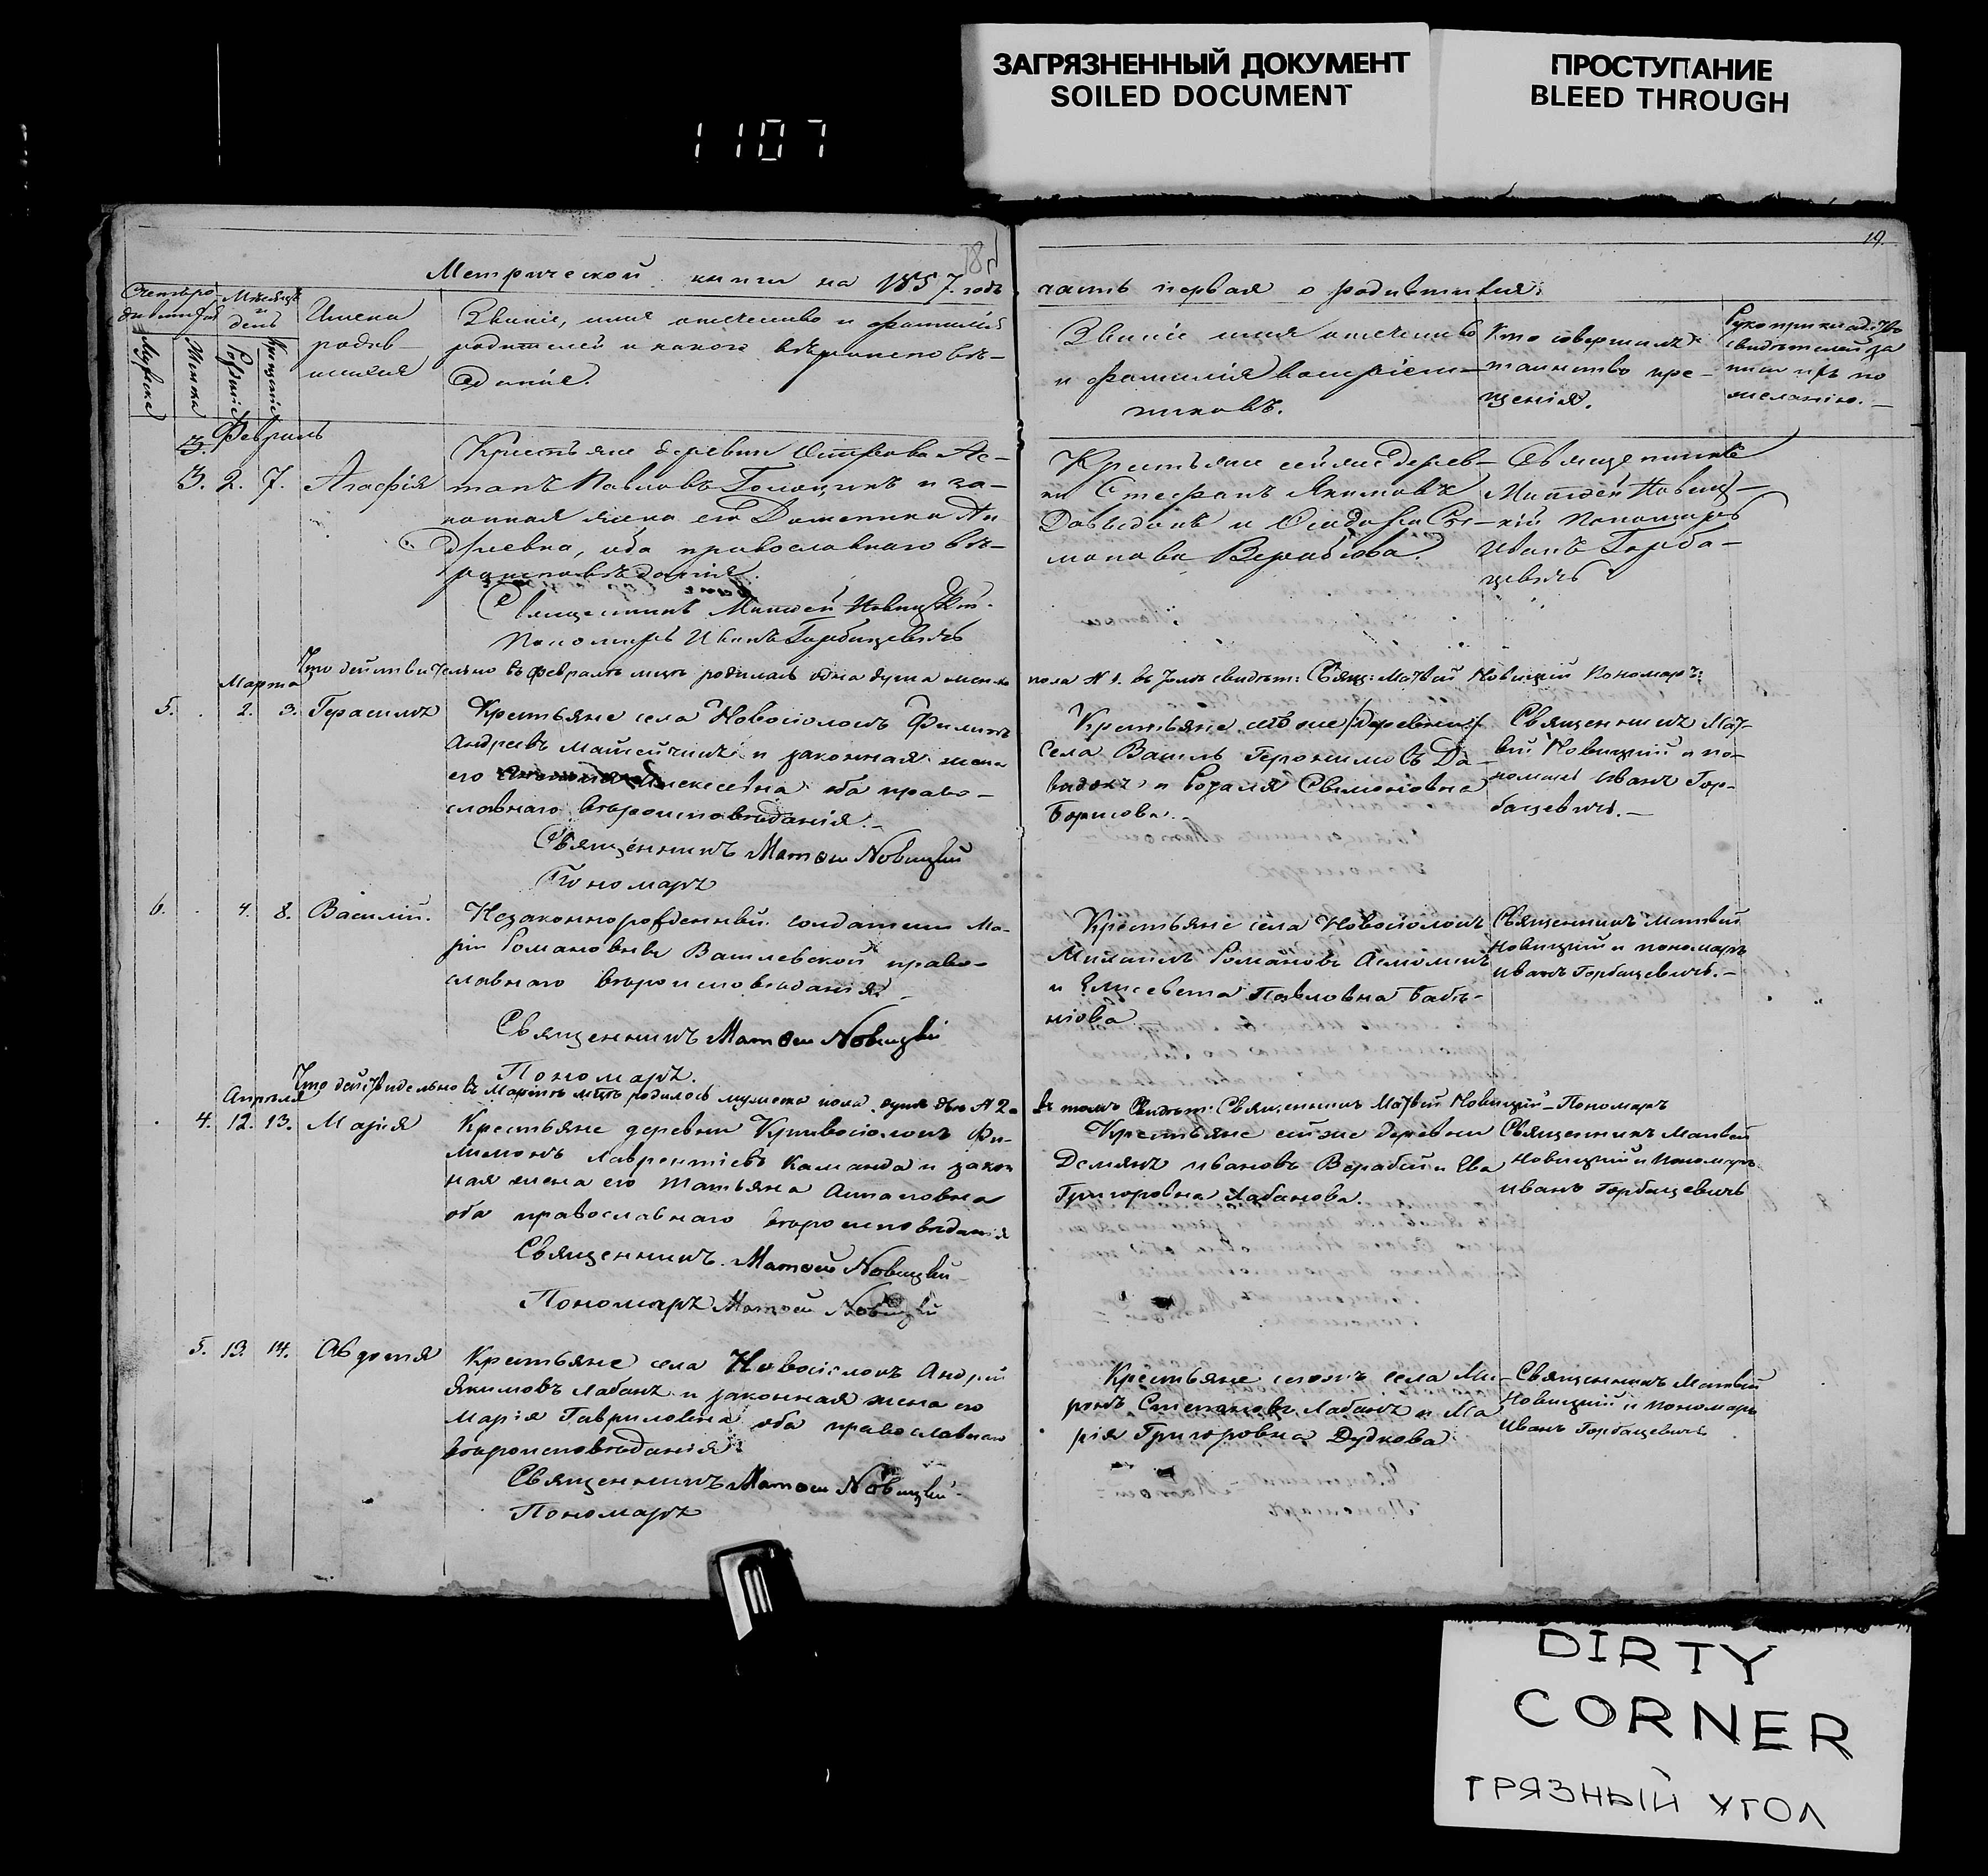 ЗАГРЯЗНЕННЫЙ ДОКУМЕНТ
SOILED DOCUMENT
ПРОСТУПАНИЕ
BLEED THROUGH
1107
Метрической книги на 1857. годъ
часть первая о родившихся:
19.
Месяцъ
и
день
Имена
родив-
шихся
Званіе, имя отчество и фамилія
родителей и какого вѣроисповѣ-
данія.
Мужска
Женска
Рожденіе
Крещеніе
Званіе имя отчество
и фамилія воспріем-
никовъ.
Кто совершалъ
таинство кре-
щенія.
Рукоприкладство
свидѣтелей за
писи по
желанію.
Февраль
3.
3. 2. 7. Агафія
Крестьяне деревни Острова Ас-
тапъ Павловъ и за-
конная жена его Домникия Ан
дреевна, оба православнаго вѣ-
роисповѣданія.
Священникъ Матвей Новицкій.
Пономарь Иванъ Горбацевичъ
Крестьяне сей же дерев-
ни Стефанъ Якимовъ
и
Священникъ
Матвей Новиц-
кій Пономарь
Иванъ Горба-
цевичъ
Что действительно въ Февралѣ мцѣ родилась одна душа женска
пола № 1. въ томъ свидѣт: Свящ: Матвий Новицкий Пономаръ:
Марта
5. 2. 3. Герасимъ
Крестьяне села Новосіолокъ Филипъ
Андреевъ и законная жена
его Алексеевна оба право-
славнаго вѣроисповѣданія.-
Священникъ Матѳей Новицкій
Пономаръ
Крестьяне того же /деревни/
Села Василь Геронимовъ Да-
видокъ и Розалія Семіоновна
Борисова.-
Священникъ Мат-
вій Новицкій и по-
номаръ Иванъ Гор-
бацевичъ.-
6. 4. 8. Василій.
Незаконнорожденный солдатки Ма-
ріи Романовны Василевской право-
славнаго вѣроисповѣданія
Священникъ Матѳей Новицкій
Пономаръ.
Крестьяне села Новосіолокъ
Михаилъ Романовъ
и Елисевета Павловна
Священникъ Матвей
Новицкій и пономаръ
Иванъ Горбацевичъ.-
Что действидельно въ Мартѣ мцѣ родилось мужеска пола душъ двѣ № 2.
въ томъ Свидѣт: Священникъ Матвій Новицкій - Пономаръ
Апреля
4. 12. 13. Марія
Крестьяне деревни Кривосіолокъ Фи-
лимонъ Лаврентіевъ Каманда и закон
ная жена его Татьяна Астаповна
оба православнаго вѣроисповѣданія
Священникъ Матѳей Новицкій
Пономаръ Матѳей Новицкій
Крестьяне сей же деревни
Демянъ Ивановъ Верабей и Ева
Григоровна Лабанова.
Священникъ Матвей
Новицкий и Пономаръ
Иванъ Горбацевичъ
5. 13. 14. Авдотия
Крестьяне села Новосіолокъ Андрей
Якимовъ Лабанъ и законная жена его
Марія Гавриловна оба православнаго
вѣроисповѣданія
Священникъ Матѳей Новицкій
Пономаръ
Крестьяне села Ми-
ронъ Степановъ Лабанъ и Ма
рія Григоровна Дудкова
Священникъ Матвей
Новицкий и пономаръ
Иванъ Горбацевичъ
DIRTY
CORNER
ГРЯЗНЫЙ УГОЛ